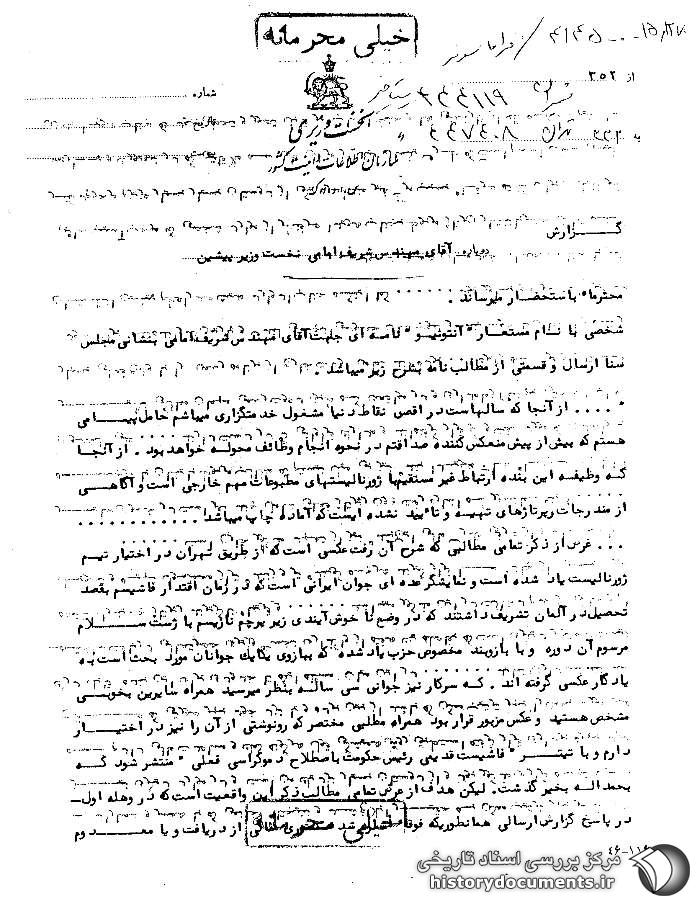 خیلی محرمانه
از ۳۵۲
شماره
۳۴۴۱۱۹
به ۲۲۲ تهران ۲۴۷۴۰۸
نخست وزیری
سازمان اطلاعات و امنیت کشور
گزارش
درباره آقای مهندس شریف امامی نخست وزیر پیشین
محترما" باستحضار میرساند .
شخصی با نام مستعار " آنتونیو " نامه ای جهت آقای مهندس شریف امامی بنشانی مجلس
سنا ارسال و قسمتی از مطالب نامه بشرح زیر میباشد .
" .... از آنجا که سالهاست در اقصی نقاط دنیا مشغول خدمتگزاری میباشم حامل پیامی
هستم که بیش از پیش منعکس کننده صداقتم در نحوه انجام وظائف محوله خواهد بود . از آنجا
که وظیفه این بنده ارتباط غیر مستقیم با ژورنالیستهای مطبوعات مهم خارجی است و آگاهی
از مندرجات رپرتاژهای تهیه و تائید نشده ایست که آماده چاپ میباشد ............
... غرض از ذکر تمامی مطالبی که شرح آن رفت عکسی است که از طریق تهران در اختیار تیم
ژورنالیست یاد شده است و نمایشگر عده ای جوان ایرانی است که در زمان اقتدار فاشیسم بقصد
تحصیل در آلمان تشریف داشتند که در وضع نا خوش آیندی زیر پرچم نازیسم با ژست سلام
مرسوم آن دوره و با بازوبند مخصوص حزب یاد شده که ببازوی یکایک جوانان مورد بحث است به
یادگار عکسی گرفته اند . که سرکار نیز جوانی سی ساله بنظر میرسید همراه سایرین بخوبی
مشخص هستید و عکس مزبور قرار بود همراه مطلبی مختصر که رونوشتی از آن را نیز در اختیار
دارم و با تیتر " فاشیست قدیمی رئیس حکومت باصطلاح دموکراسی فعلی " منتشر شود که
بحمداله بخیر گذشت. لیکن هدف از عرض تمامی مطالب ذکر این واقعیت است که در وهله اول
در پاسخ گزارش ارسالی همانطوریکه فوقا از دریافت و یا معدوم
خیلی محرمانه
مرکز بررسی اسناد تاریخی
historydocuments.ir